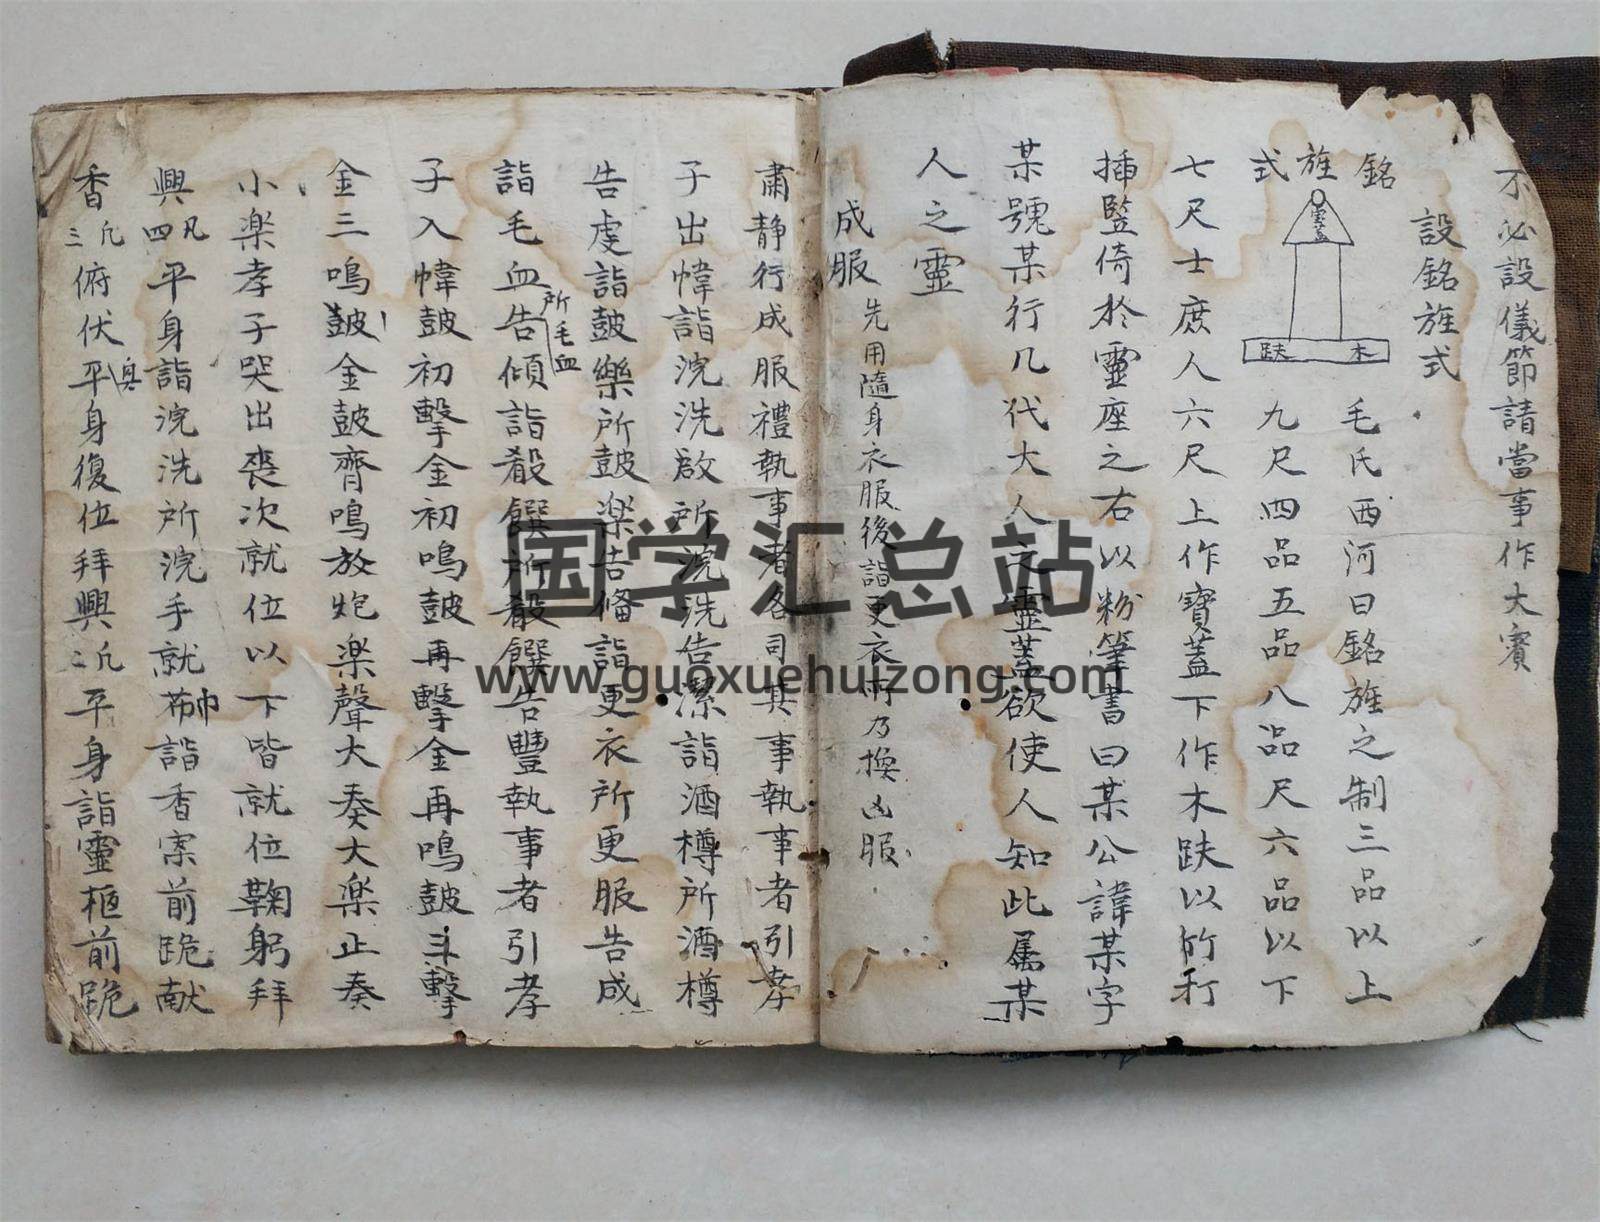 不必設儀節請當事作大賓
設銘旌式
銘旌式
靈盖
木趺
毛氏西河曰銘旌之制三品以上
九尺四品五品八品尺六品以下
七尺士庶人六尺上作寶蓋下作木趺以竹杠
插竪倚於靈座之右以粉筆書曰某公諱某字
某號某行几代大人之靈蓋欲使人知此属某
人之靈
成服 先用隨身衣服後詣更衣所乃換凶服
肅静行成服禮執事者各司其事執事者引孝
子出幃詣浣洗啟所浣洗告潔詣酒樽所酒樽
告虔詣鼓樂所鼓楽告備詣更衣所更服告成
詣毛血所毛血告傾詣殽饌所殽饌告豐執事者引孝
子入幃鼓初擊金初鳴鼓再擊金再鳴鼓三擊
金三鳴鼓金鼓齊鳴放炮楽聲大奏大楽止奏
小楽孝子哭出喪次就位以下皆就位鞠躬拜
興四凡平身詣浣洗所浣手就布巾詣香案前跪献
香三凡俯伏興平身復位拜興二凡平身詣靈柩前跪
国学汇总站
www.guoxuehuizong.com